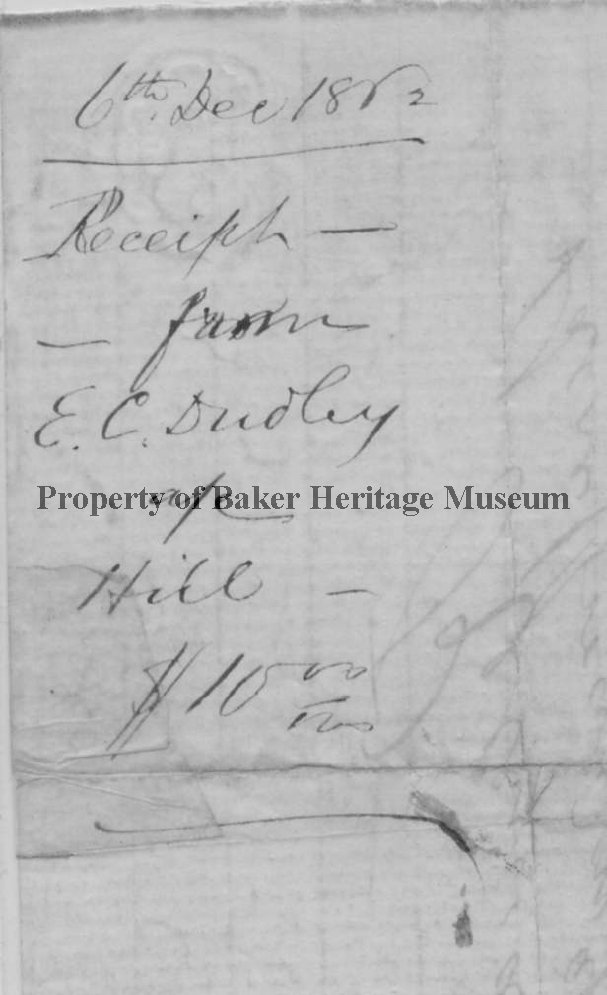 6th. Dec 1862
Receipt —
— from
E. C. Dudley
Property of Baker Heritage Museum
Hill —
$10 00/100